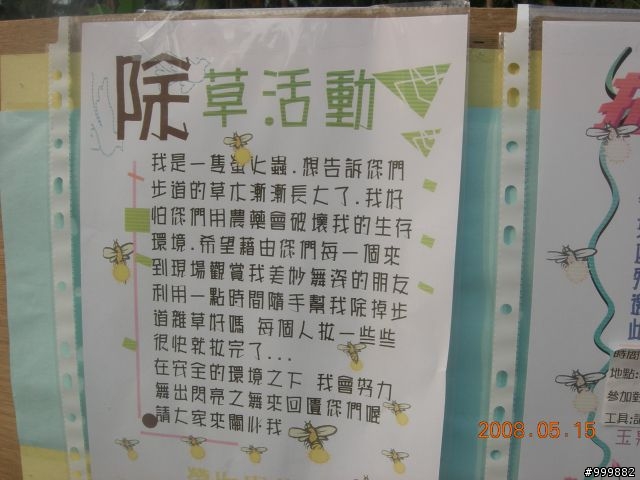 除草活動
我是一隻螢火蟲.想告訴您們
步道的草木漸漸長大了.我好
怕您們用農藥會破壞我的生存
環境.希望藉由您們每一個來
到現場觀賞我美妙舞姿的朋友
利用一點時間隨手幫我除掉步
道雜草好嗎 每個人拉一些些
很快就拉完了...
在安全的環境之下 我會努力
舞出閃亮之舞來回匱您們喔
請大家來關心我
時間
地點:
參加對
工具:
2008.05.15
#999882